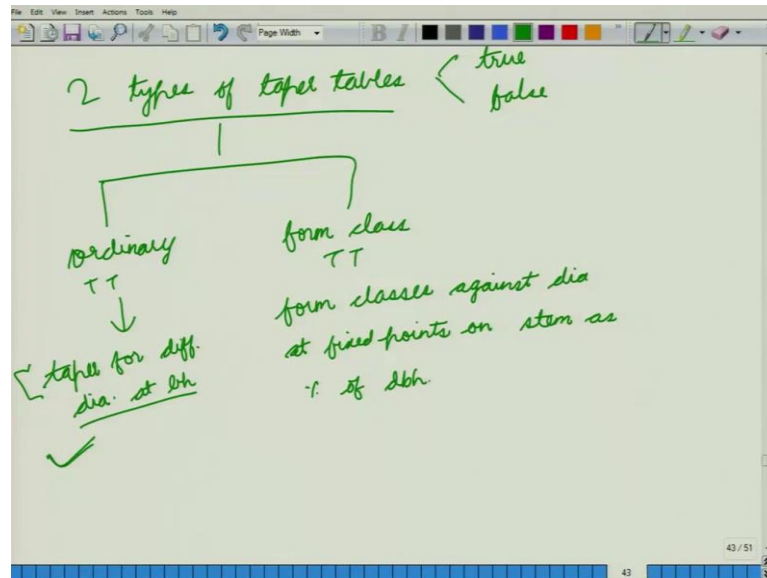 File Edit View Insert Actions Tools Help
Page Width
B I
2 types of taper tables
true
false
ordinary
TT
form class
TT
taper for diff.
dia. at bh
form classes against dia
at fixed points on stem as
% of dbh.
43/51
43